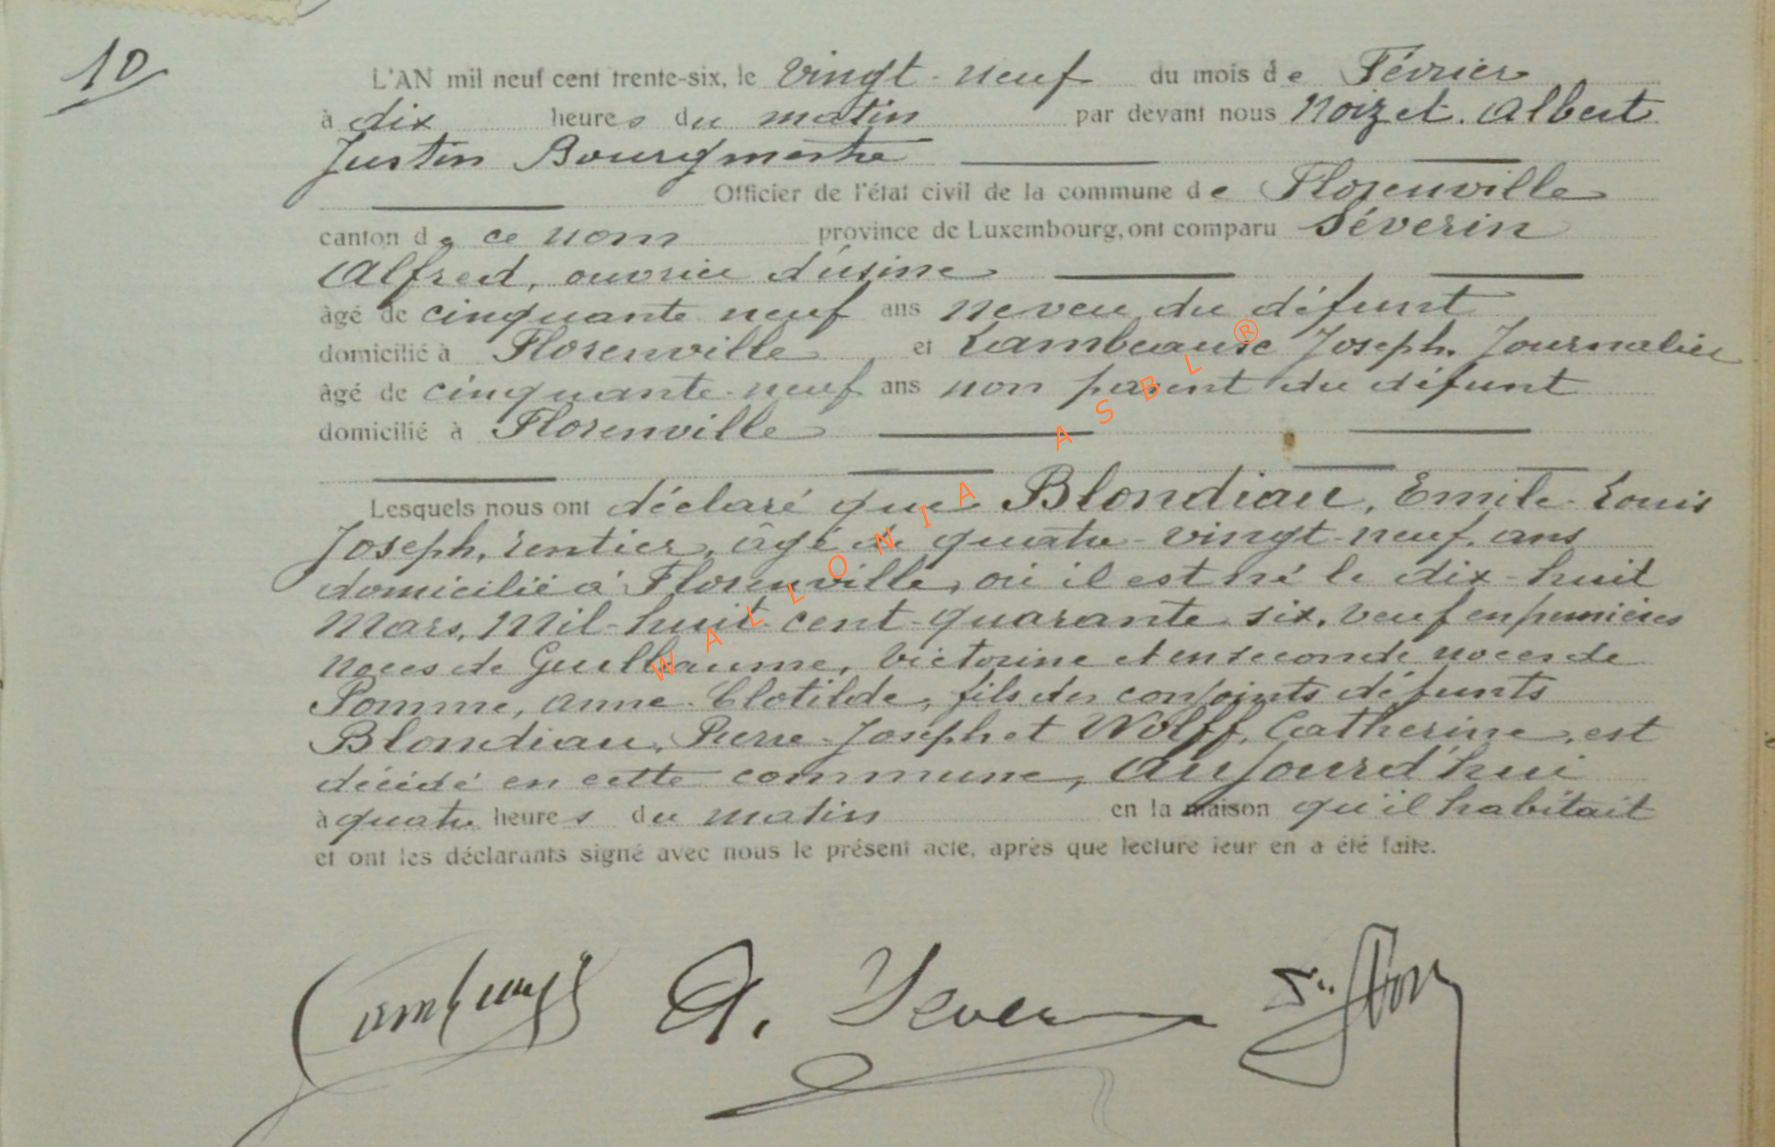 10
L'AN mil neuf cent trente-six, le vingt-neuf du mois de Février
à dix heures du matin par devant nous Noizet. Albert
Justin Bourgmestre
Officier de l'état civil de la commune de Florenville
canton de ce nom province de Luxembourg, ont comparu Séverin
Alfred, ouvrier d'usine
âgé de cinquante neuf ans neveu du défunt
domicilié à Florenville et Joseph. Journalier
âgé de cinquante-neuf ans non parent du défunt
domicilié à Florenville
Lesquels nous ont déclaré que Blondiau, Emile-Louis
Joseph, rentier, âgé de quatre-vingt-neuf. ans
domicilié à Florenville, où il est né le dix-huit
Mars, Mil-huit-cent-quarante six. veuf en premières
noces de Guillaume, Victorine et en seconde noces de
Pomme, Anne-Clotilde, fils des conjoints défunts
Blondiau, Pierre-Joseph et Wolff, Catherine, est
décédé en cette commune, aujourd'hui
à quatre heures du matin en la maison qu'il habitait
et ont les déclarants signé avec nous le présent acte, après que lecture leur en a été faite.
A.
WALLONIA ASBL ®